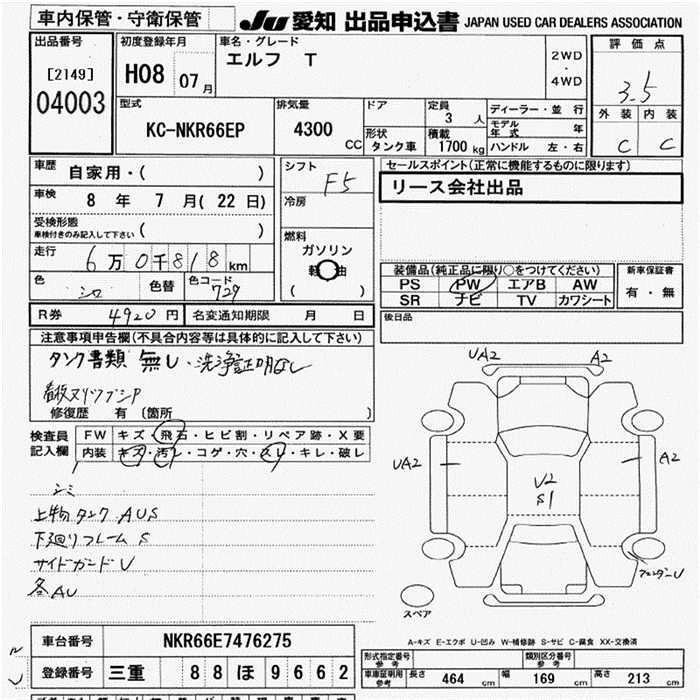 車内保管・守衛保管
JU 愛知 出品申込書 JAPAN USED CAR DEALERS ASSOCIATION
出品番号
[2149]
04003
初度登録年月
H08 07月
車名・グレード
エルフ T
2WD
・
4WD
評価点
3.5
外装 内装
C C
型式
KC-NKR66EP
排気量
4300 CC
ドア
形状
タンク車
定員
3人
積載
1700kg
ディーラー・並行
モデル年式 年
ハンドル 左・右
車歴
自家用・( )
車検
8年 7月(22日)
受検形態
車検付きのみ記入して下さい ( )
走行
6万0千818km
色
シロ
色替
色コード
729
シフト
F5
冷房
燃料
ガソリン
軽油
( )
セールスポイント(正常に機能するものに限ります)
リース会社出品
装備品(純正品に限り○をつけてください)
PS PW エアB AW
SR ナビ TV カワシート
新車保証書
有・無
R券 4920円
名変通知期限 月 日
後日品
注意事項申告欄(不具合内容等は具体的に記入して下さい)
タンク書類 無し・洗浄証明なし
修復歴 有 〔箇所 〕
検査員
記入欄
FW キズ・飛石・ヒビ割・リペア跡・X要
内装 キズ・汚レ・コゲ・穴・スレ・キレ・破レ
シミ
上物タンク AUS
下廻りフレーム S
サイドガード U
各AU
UA2
A2
UA2
A2
U2
S1
フェンダーU
スペア
A-キズ E-エクボ U-凹み W-補修跡 S-サビ C-腐食 XX-交換済
車台番号 NKR66E7476275
登録番号 三重 88 ほ 9662
形式指定番号
参考
類別区分番号
参考
車庫証明用
参考
長さ 464 cm 幅 169 cm 高さ 213 cm